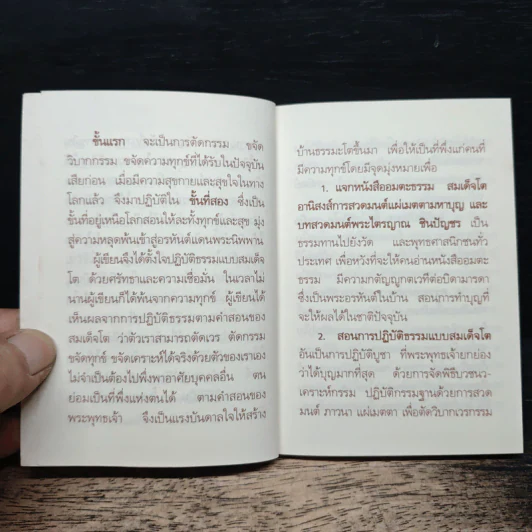 ขั้นแรก จะเป็นการตัดกรรม ขจัด
วิบากกรรม ขจัดความทุกข์ที่ได้รับในปัจจุบัน
เสียก่อน เมื่อมีความสุขกายและสุขใจในทาง
โลกแล้ว จึงมาปฏิบัติใน ขั้นที่สอง ซึ่งเป็น
ขั้นที่อยู่เหนือโลกสอนให้ละทั้งทุกข์และสุข มุ่ง
สู่ความหลุดพ้นเข้าสู่อรหันต์แดนพระนิพพาน
ผู้เขียนจึงได้ตั้งใจปฏิบัติธรรมแบบสมเด็จ
โต ด้วยศรัทธาและความเชื่อมั่น ในเวลาไม่
นานผู้เขียนก็ได้พ้นจากความทุกข์ ผู้เขียนได้
เห็นผลจากการปฏิบัติธรรมตามคำสอนของ
สมเด็จโต ว่าตัวเราสามารถตัดเวร ตัดกรรม
ขจัดทุกข์ ขจัดเคราะห์ได้จริงด้วยตัวของเราเอง
ไม่จำเป็นต้องไปพึ่งพาอาศัยบุคคลอื่น ตน
ย่อมเป็นที่พึ่งแห่งตนได้ ตามคำสอนของ
พระพุทธเจ้า จึงเป็นแรงบันดาลใจให้สร้าง
บ้านธรรมะโตขึ้นมา เพื่อให้เป็นที่พึ่งแก่คนที่
มีความทุกข์โดยมีจุดมุ่งหมายเพื่อ
1. แจกหนังสืออมตะธรรม สมเด็จโต
อานิสงส์การสวดมนต์แผ่เมตตามหาบุญ และ
บทสวดมนต์พระไตรญาณ ชินปัญชร เป็น
ธรรมทานไปยังวัด และพุทธศาสนิกชนทั่ว
ประเทศ เพื่อหวังที่จะให้คนอ่านหนังสืออมตะ
ธรรม มีความกตัญญูกตเวทีต่อบิดามารดา
ซึ่งเป็นพระอรหันต์ในบ้าน สอนการทำบุญที่
จะให้ผลได้ในชาติปัจจุบัน
2. สอนการปฏิบัติธรรมแบบสมเด็จโต
อันเป็นการปฏิบัติบูชา ที่พระพุทธเจ้ายกย่อง
ว่าได้บุญมากที่สุด ด้วยการจัดพิธีบวชนว-
เคราะห์กรรม ปฏิบัติกรรมฐานด้วยการสวด
มนต์ ภาวนา แผ่เมตตา เพื่อตัดวิบากเวรกรรม